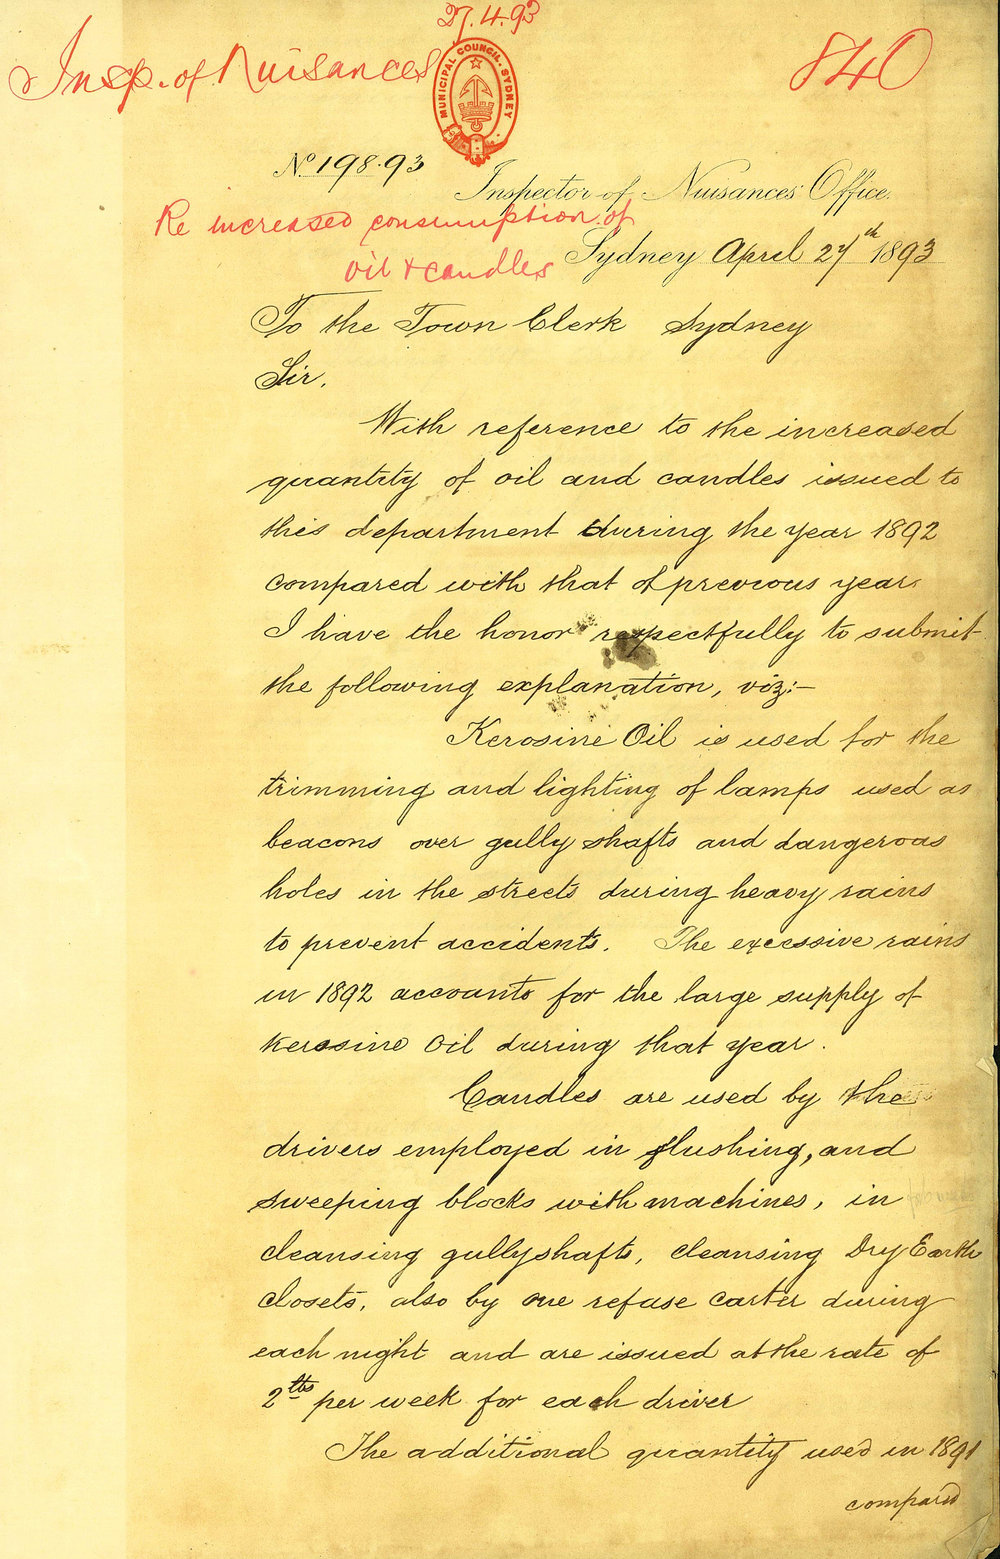 27.4.93
Insp. of Nuisances
840
MUNICIPAL COUNCIL. SYDNEY
No. 198.93
Inspector of Nuisances Office.
Re increased consumption of
oil & candles
Sydney April 27th 1893
To the Town Clerk Sydney
Sir,
With reference to the increased
quantity of oil and candles issued to
this department during the year 1892
compared with that of previous year
I have the honor respectfully to submit
the following explanation, viz:—
Kerosine Oil is used for the
trimming and lighting of lamps used as
beacons over gully shafts and dangerous
holes in the streets during heavy rains
to prevent accidents. The excessive rains
in 1892 accounts for the large supply of
Kerosine Oil during that year.
Candles are used by the
drivers employed in flushing, and
sweeping blocks with machines, in
cleansing gullyshafts, cleansing Dry Earth
closets, also by one refuse carter during
each night and are issued at the rate of
2 lbs per week for each driver
The additional quantity used in 1891
compared